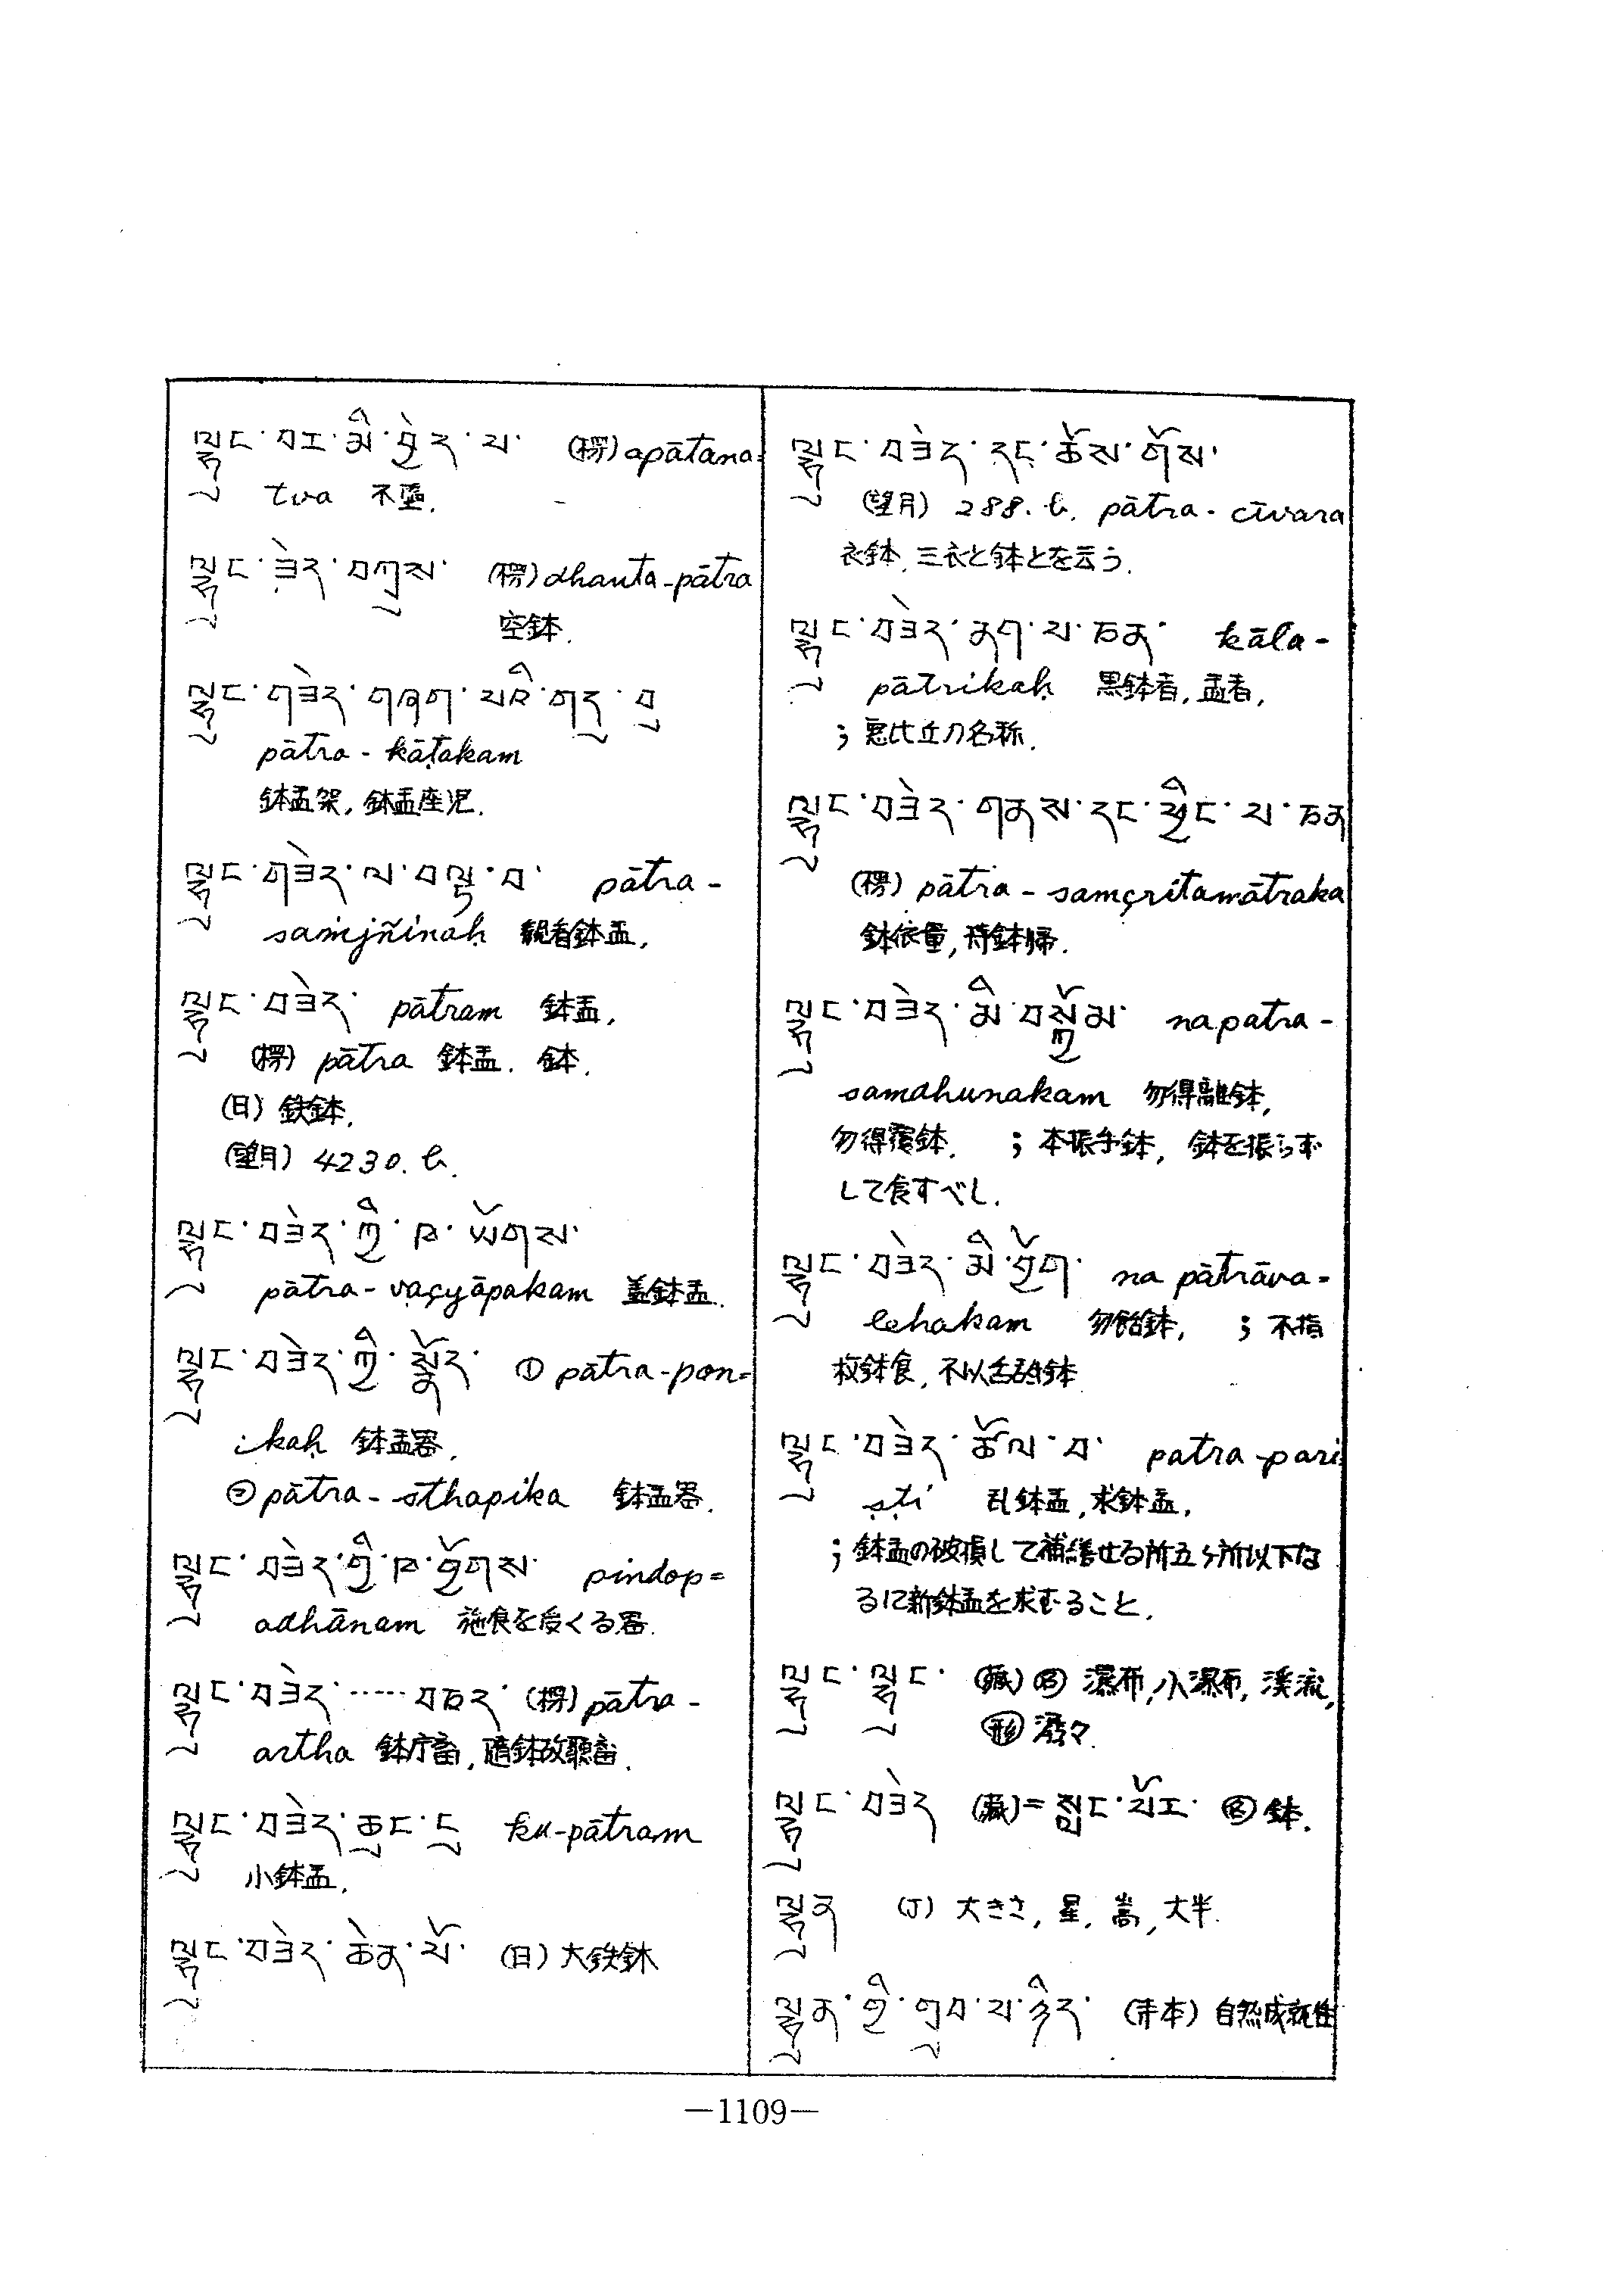 ལྷུང་བར་མི་བྱེད་པ་ (楞) apātana=
tva 不墮.
ལྷུང་ཟེད་བཀྲུས་ (楞) dhauta-pātra
空鉢.
ལྷུང་གཟེད་གཞག་པའི་གདུ་བུ
pātra-kāṭakam
鉢盂架, 鉢盂座児.
ལྷུང་གཟེད་ལ་བལྟ་བ་ pātra-
saṁjñinaḥ 観看鉢盂,
ལྷུང་བཟེད་ pātram 鉢盂,
(楞) pātra 鉢盂. 鉢.
(日) 鉄鉢.
(望月) 4230. b.
ལྷུང་བཟེད་ཀྱི་ཁ་ཡོགས་
pātra-vaçyāpakam 盖鉢盂.
ལྷུང་བཟེད་ཀྱི་སྣོད་ ① pātra-pon=
ikaḥ 鉢盂器.
② pātra-sthapika 鉢盂器.
ལྷུང་བཟེད་ཀྱི་ཁ་ཕྱོགས་ pindop=
adhānam 施食を受くる器.
ལྷུང་བཟེད་……བཅད་ (楞) pātra-
artha 鉢庁畜, 隨鉢故聽畜.
ལྷུང་བཟེད་ཆུང་ངུ ku-pātram
小鉢盂.
ལྷུང་བཟེད་ཆེན་པོ་ (日) 大鉄鉢
ལྷུང་བཟེད་དང་ཆོས་གོས་
(望月) 288. b. pātra-cīvara
衣鉢. 三衣と鉢とを云う.
ལྷུང་བཟེད་ནག་པ་ཅན་ kāla-
pātrikaḥ 黒鉢者, 盂者,
; 悪比丘の名称.
ལྷུང་བཟེད་གནས་དང་ཕྱིང་པ་ཅན
(楞) pātra-samçritamātraka
鉢依量, 持鉢帰.
ལྷུང་བཟེད་མི་བསྐྱོམ་ na patra-
samdhunakam 勿得離鉢,
勿得覆鉢. ; 本振手鉢, 鉢を振らず
して食すべし.
ལྷུང་བཟེད་མི་བྱོག་ na pātrāva=
lehakam 勿飴鉢, ; 不指
抆鉢食, 不以舌舐鉢
ལྷུང་བཟེད་ཚོལ་བ་ patra-pari
ṣṭi 乱鉢盂, 求鉢盂,
; 鉢盂の破損して補繕せる所五ヶ所以下な
るに新鉢盂を求むること.
ལྷུང་ལྷུང་ (蔵) 名 瀑布, 小瀑布, 渓流,
形 潺々.
ལྷུང་བཟེད (蔵)= སླུང་པོར་ 名 鉢.
ལྷུན (J) 大きさ, 星, 嵩, 大半.
ལྷུན་གྱི་གྲུབ་པ་ཉིད་ (弗本) 自然成就性
—1109—